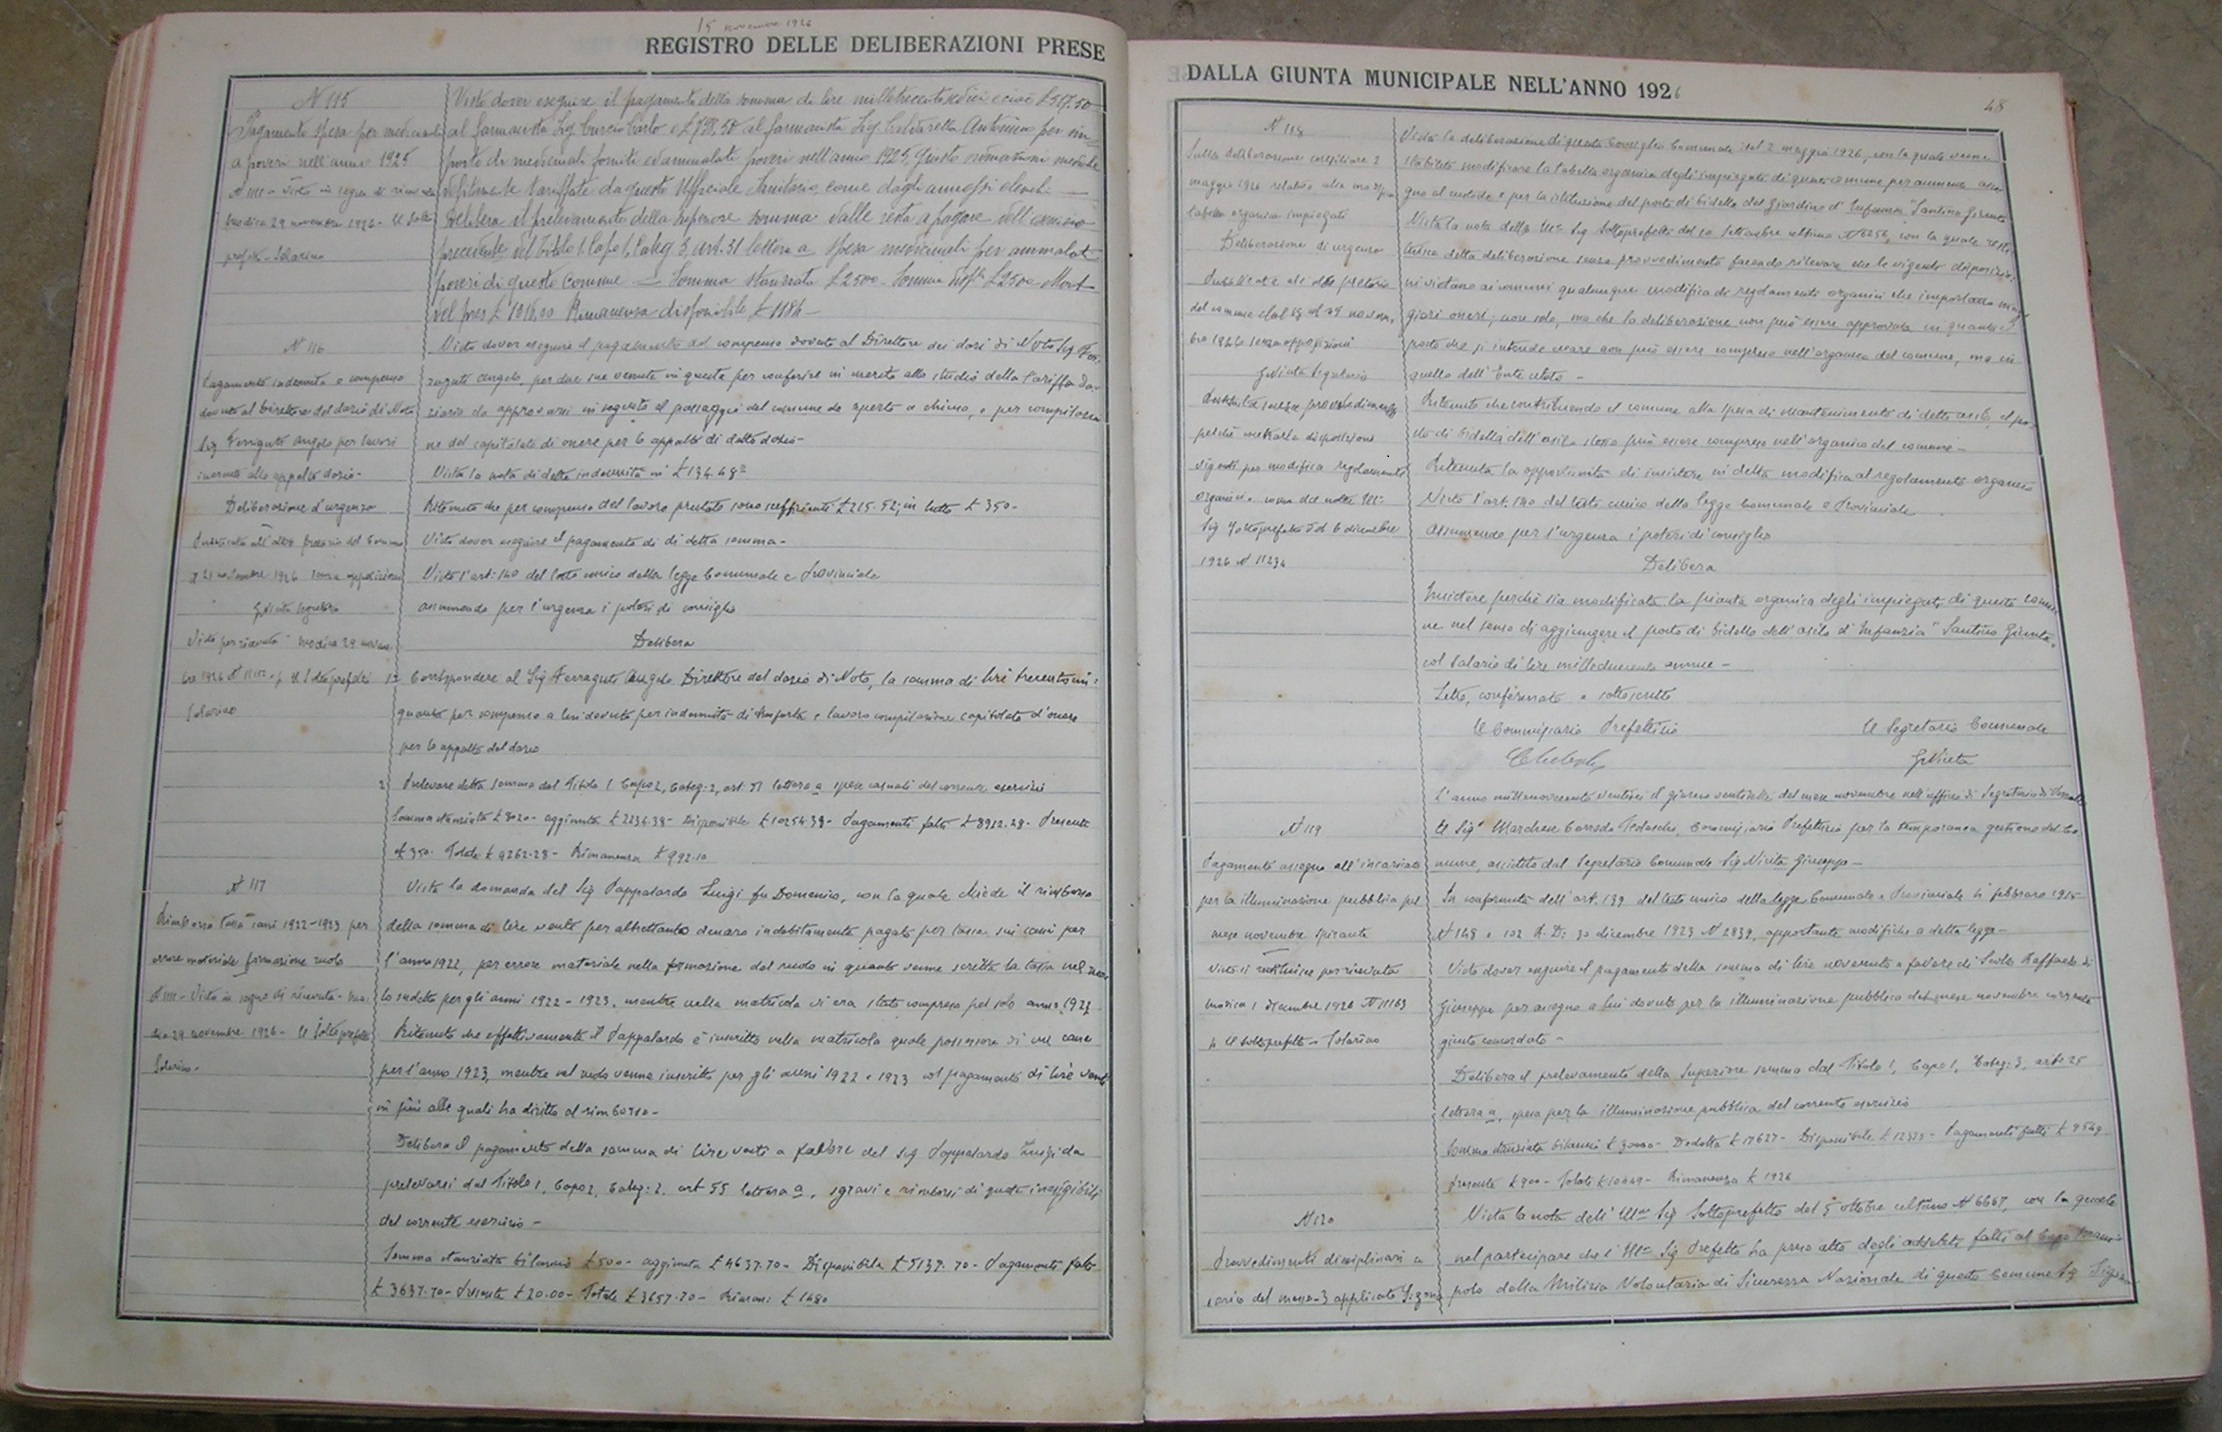 15 novembre 1926
REGISTRO DELLE DELIBERAZIONI PRESE
N 115
Pagamento spesa per medicinali
a poveri nell'anno 1925
N 1111 - Visto in segno di ricevuta
Modica 29 novembre 1926 - Il Sotto
prefetto - Solarino
Visto dover eseguire il pagamento della somma di lire milletrecentosedici e cioè £ 517.50
al farmacista Sig Curcio Carlo e £ 798.50 al farmacista Sig Caldarella Antonino per im
porto di medicinali forniti ad ammalati poveri nell'anno 1925, giuste ordinazioni mediche
debitamente tariffate da questo Ufficiale Sanitario, come dagli annessi elenchi
Delibera il prelevamento della superiore somma dalle resta a pagare dell'esercizio
precedente del Titolo 1, Capo 1, Categ 3, art. 31 lettera a spesa medicinali per ammalati
poveri di questo Comune — Somma stanziata £ 2500
del pres £ 1316.00 Rimanenza disponibile £ 1184 —
N 116
Pagamento indennità e compenso
dovuto al Direttore del dazio di Noto
Sig Ferraguto Angelo per lavori
inerenti allo appalto dazio -
Deliberazione d'urgenza
Pubblicata all'albo pretorio del Comune
il 21 novembre 1926 senza opposizioni
G Nicita Segretario
Visto per ricevuta - Modica 29 novem
bre 1926 N 11112 - p. Il Sottoprefetto
Solarino
Visto dover eseguire il pagamento del compenso dovuto al Direttore dei dazi di Noto Sig. Fer=
raguto Angelo, per due sue venute in questa per conferire in merito allo studio della tariffa da=
ziaria da approvarsi in seguito al passaggio del comune da aperto a chiuso, e per compilazio
ne del capitolato di onere per lo appalto di detto dazio -
Vista la nota di dette indennità in £ 134.48
Ritenuto che per compenso del lavoro prestato sono sufficienti £ 215.52; in tutto £ 350 -
Visto dover eseguire il pagamento di di detta somma -
Visto l'art: 140 del testo unico della legge Comunale e Provinciale
Assumendo per l'urgenza i poteri di consiglio
Delibera
1° Corrispondere al Sig Ferraguto Angelo Direttore del dazio di Noto, la somma di lire trecentocin=
quanta per compenso a lui dovuto per indennità di trasferta e lavoro compilazione capitolato d'onere
per lo appalto del dazio
2 Prelevare detta somma dal Titolo 1 Capo 2, Categ: 2, art. 51 lettera a spese casuali del corrente esercizio
Somma stanziata £ 8020 - aggiunta £ 2234.38 - Disponibile £ 10254.38 - Pagamenti fatti £ 8912.28 - Presente
£ 350. Totale £ 9262.28 - Rimanenza £ 992.10
N 117
Rimborso tassa cani 1922-1923 per
errore materiale formazione ruolo
N 1111 - Visto in segno di ricevuta - Mo=
dica 29 novembre 1926 - Il Sottoprefetto
Solarino -
Vista la domanda del Sig Pappalardo Luigi fu Domenico, con la quale chiede il rimborso
della somma di lire venti per altrettanto denaro indebitamente pagato per tassa sui cani per
l'anno 1922, per errore materiale nella formazione del ruolo in quanto venne scritta la tassa nel ruo
lo suddetto per gli anni 1922 - 1923, mentre nella matricola vi era stato compreso pel solo anno 1923
Ritenuto che effettivamente il Pappalardo è inscritto nella matricola quale possessore di un cane
per l'anno 1923, mentre nel ruolo venne inscritto per gli anni 1922 e 1923 col pagamento di lire venti
in più alle quali ha diritto al rimborso -
Delibera il pagamento della somma di lire venti a favore del Sig Pappalardo Luigi da
prelevarsi dal Titolo 1, Capo 2, Categ: 2. art 55 lettera a, sgravi e rimborsi di quote inesigibili
del corrente esercizio -
Somma stanziata bilancio £ 500 - aggiunta £ 4637.70 - Disponibile £ 5137.70 - Pagamenti fatti
£ 3637.70 - Presente £ 20.00 - Totale £ 3657.70 - Rimane: £ 1480
DALLA GIUNTA MUNICIPALE NELL'ANNO 1926
48
N 118
Sulla deliberazione consiliare 2
maggio 1926 relativa alla modifica
tabella organica impiegati
Deliberazione di urgenza
Pubblicata all'albo pretorio
del comune dal 28 al 29 novem,
bre 1926 senza opposizioni
G Nicita Segretario
Restituita senza provvedimento
perchè contraria disposizioni
vigenti per modifica regolamenti
organici, come da nota Ill°
Sig Sottoprefetto del 6 dicembre
1926 N 11234
Vista la deliberazione di questo Consiglio Comunale del 2 maggio 1926, con la quale venne
stabilito modificare la tabella organica degli impiegati di questo comune per aumento asse
gno al custode e per la istituzione del posto di bidella del Giardino d'Infanzia "Santina Giunta
Vista la nota dell'Ill° Sig Sottoprefetto del 20 Settembre ultimo N 6256, con la quale resti=
tuiva detta deliberazione senza provvedimento facendo rilevare che le vigenti disposizio=
ni vietano ai comuni qualunque modifica di regolamenti organici che importasse mag=
giori oneri; non solo, ma che la deliberazione non può essere approvata in quanto il
posto che si intende creare non può essere compreso nell'organico del comune, ma in
quello dell'Ente stesso -
Ritenuto che contribuendo il comune alla spesa di mantenimento di detto asilo, il po=
sto di bidella dell'asilo stesso può essere compreso nell'organico del comune -
Ritenuta la opportunità di insistere in detta modifica al regolamento organico
Visto l'art. 140 del testo unico della legge Comunale e Provinciale
Assumendo per l'urgenza i poteri di consiglio
Delibera
Insistere perchè sia modificata la pianta organica degli impiegati di questo comu=
ne nel senso di aggiungere il posto di bidella dell'asilo d'Infanzia "Santina Giunta"
col salario di lire milleduecento annue -
Letto, confermato e sottoscritto
Il Commissario Prefettizio
Il Segretario Comunale
G Nicita
L'anno millenovecento ventisei il giorno ventisette del mese novembre nell'ufficio di Segreteria Comunale
N 119
Pagamento assegno all'incaricato
per la illuminazione pubblica pel
mese novembre spirante
Visto si restituisce per ricevuta
Modica 1 dicembre 1926 N 11163
p Il Sottoprefetto - Solarino
Il Sig° Marchese Corrado Tedeschi, Commissario Prefettizio per la temporanea gestione del Co
mune, assistito dal Segretario Comunale Sig Nicita Giuseppe -
In conformità dell'art. 139 del testo unico della legge Comunale e Provinciale 4 febbraio 1915
N 148 e 102 R.D: 30 dicembre 1923 N 2839, apportante modifiche a detta legge -
Visto dover eseguire il pagamento della somma di lire novecento a favore di Raffaele di
Giuseppe per assegno a lui dovuto per la illuminazione pubblica del mese novembre corrente
giusto concordato -
Delibera il prelevamento della superiore somma dal Titolo 1, Capo 1, Categ: 3, art: 25
lettera a, spesa per la illuminazione pubblica del corrente esercizio
Somma stanziata bilancio £ 30000 - Dedotta £ 17627 - Disponibile £ 12375 - Pagamenti fatti £ 9549
Presente £ 900 - Totale £ 10449 - Rimanenza £ 1926
N 120
Provvedimenti disciplinari a
carico del messo-3° applicato Sigona
Vista la nota dell'Ill° Sig Sottoprefetto del 5 ottobre ultimo N 6667, con la quale
nel partecipare che l'Ill° Sig Prefetto ha preso atto degli addebiti fatti al Capo
polo della Milizia Volontaria di Sicurezza Nazionale di questo Comune Sig Sigona